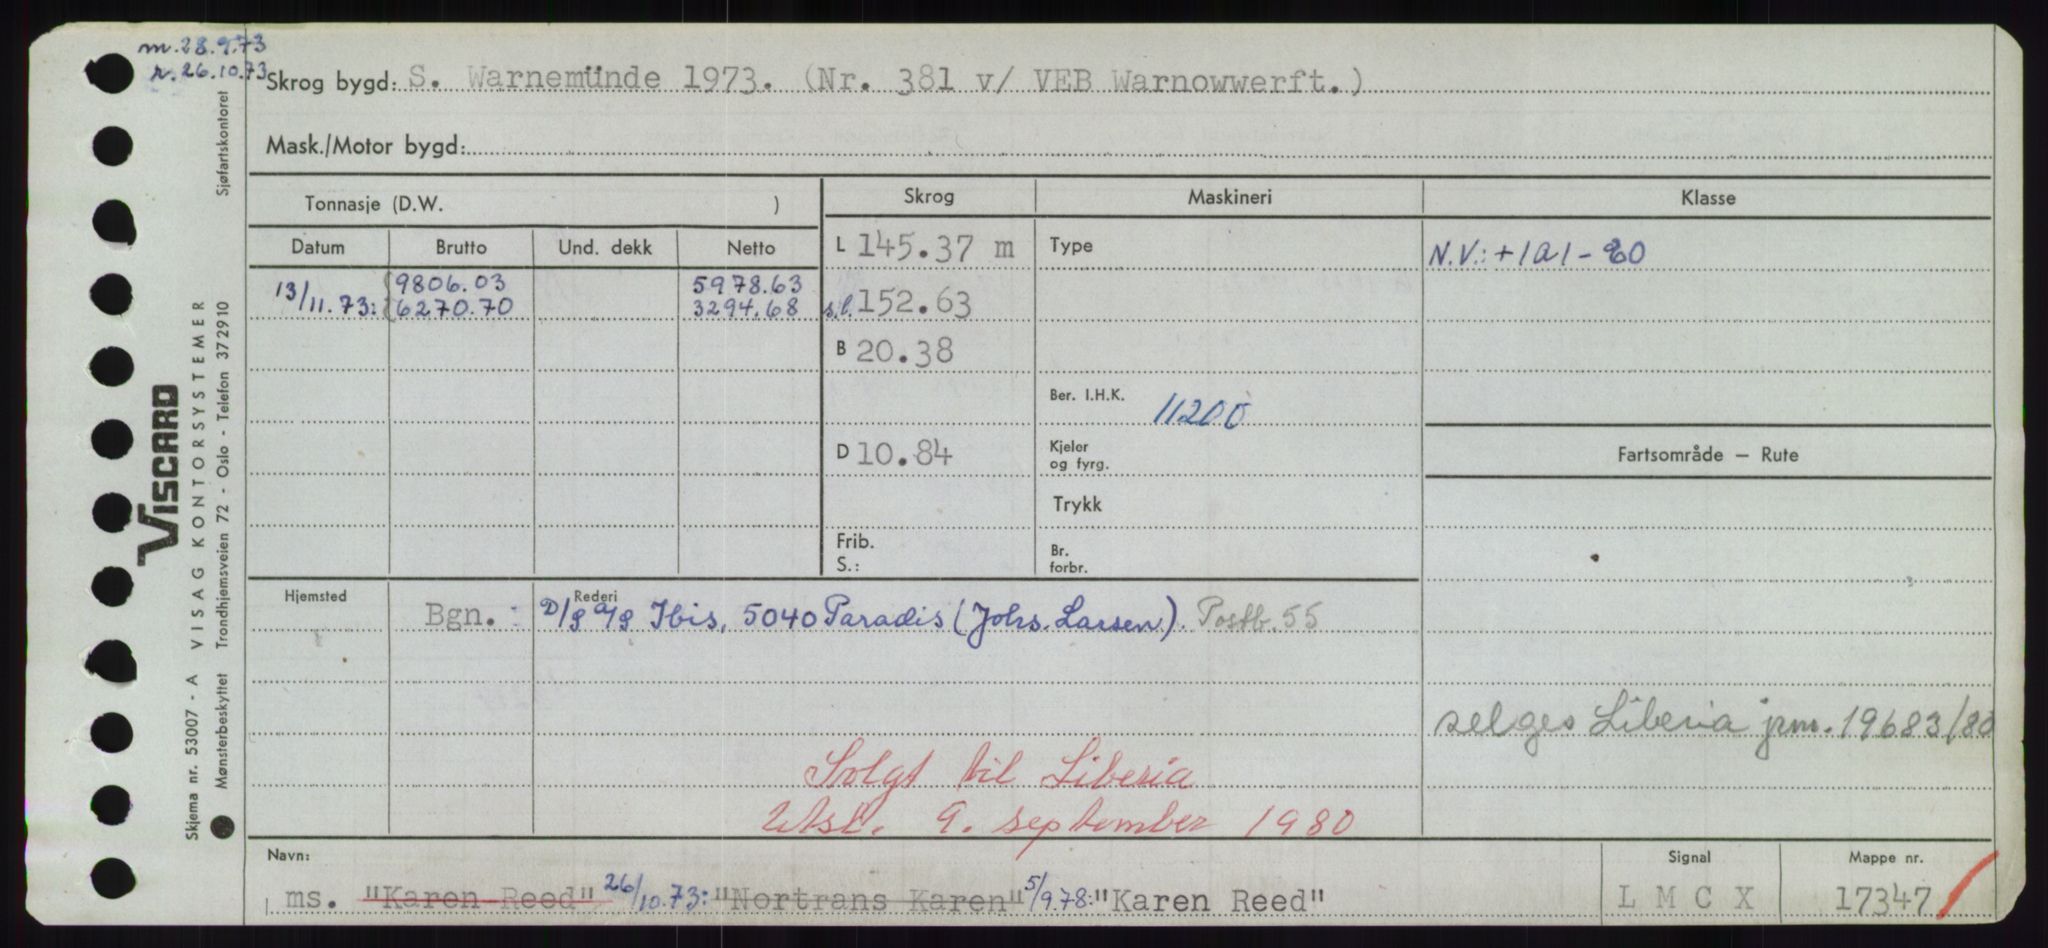 m. 28.9.73
r. 26.10.73
Skrog bygd: S. Warnemünde 1973. (Nr. 381 v/ VEB Warnowwerft.)
Mask./Motor bygd:
Tonnasje (D.W. )
Skrog
Maskineri
Klasse
Datum Brutto Und. dekk Netto
L 145.37 m
Type
N.V.: +1A1-80
13/11.73: 9806.03 5978.63
6270.70 3294.68
s.l. 152.63
B 20.38
Ber. I.H.K. 11200
D 10.84
Kjeler
og fyrg.
Fartsområde — Rute
Trykk
Frib.
S.:
Br.
forbr.
Hjemsted
Rederi
Bgn. : D/S A/S Ibis, 5040 Paradis (Johs. Larsen). Postb. 55
selges Liberia jrnr. 19683/80
Solgt til Liberia
Utsl. 9. september 1980
Navn:
Signal
Mappe nr.
ms. "Karen Reed" 26/10.73: "Nortrans Karen" 5/9.78: "Karen Reed"
L M C X
17347
VISCARD
VISAG KONTORSYSTEMER
Skjema nr. 53007 - A
Mønsterbeskyttet
Trondhjemsveien 72 - Oslo - Telefon 372910
Sjøfartskontoret